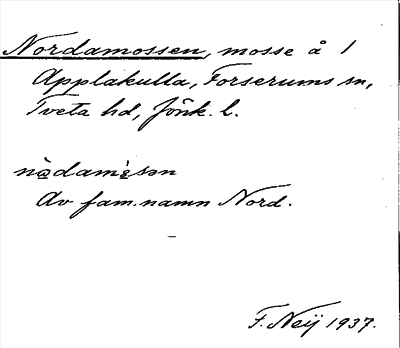 Nordamossen, mosse å 1
Äpplakulla, Forserums sn,
Tveta hd, Jönk. l.
Av fam.namn Nord.
F. Neij 1937.